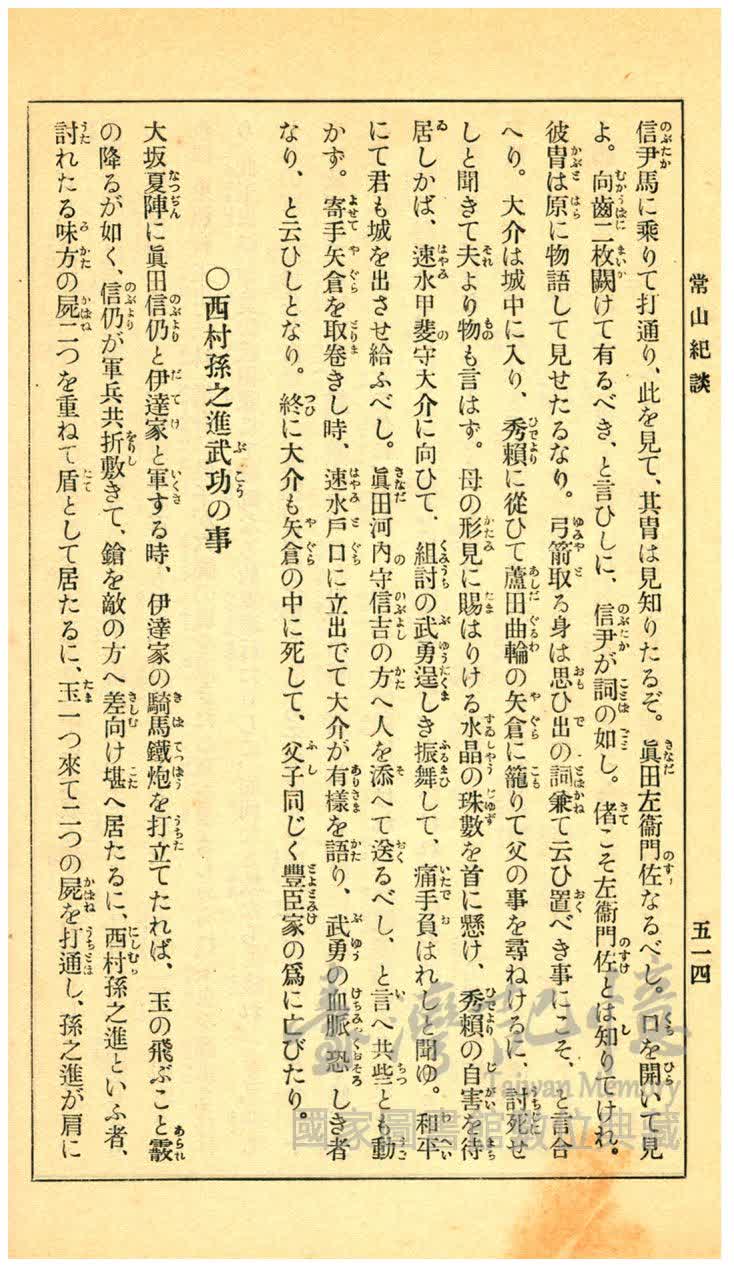 常山紀談
五一四
信尹馬に乘りて打通り、此を見て、其冑は見知りたるぞ。眞田左衞門佐なるべし。口を開いて見
よ。向齒二枚闕けて有るべき、と言ひしに、信尹が詞の如し。偖こそ左衞門佐とは知りてけれ。
彼冑は原に物語して見せたるなり。弓箭取る身は思ひ出の詞兼て云ひ置べき事にこそ、と言合
へり。大介は城中に入り、秀賴に從ひて蘆田曲輪の矢倉に籠りて父の事を尋ねけるに、討死せ
しと聞きて夫より物も言はず。母の形見に賜はりける水晶の珠數を首に懸け、秀賴の自害を待
居しかば、速水甲斐守大介に向ひて、組討の武勇逞しき振舞して、痛手負はれしと聞ゆ。和平
にて君も城を出させ給ふべし。眞田河內守信吉の方へ人を添へて送るべし、と言へ共些とも動
かず。寄手矢倉を取卷きし時、速水戶口に立出でて大介が有樣を語り、武勇の血脈恐しき者
なり、と云ひしとなり。終に大介も矢倉の中に死して、父子同じく豐臣家の爲に亡びたり。
〇西村孫之進武功の事
大坂夏陣に眞田信仍と伊達家と軍する時、伊達家の騎馬鐵炮を打立てたれば、玉の飛ぶこと霰
の降るが如く、信仍が軍兵共折敷きて、鎗を敵の方へ差向け堪へ居たるに、西村孫之進といふ者、
討れたる味方の屍二つを重ねて盾として居たるに、玉一つ來て二つの屍を打通し、孫之進が肩に
臺灣記憶
Taiwan Memory
國家圖書館數位典藏